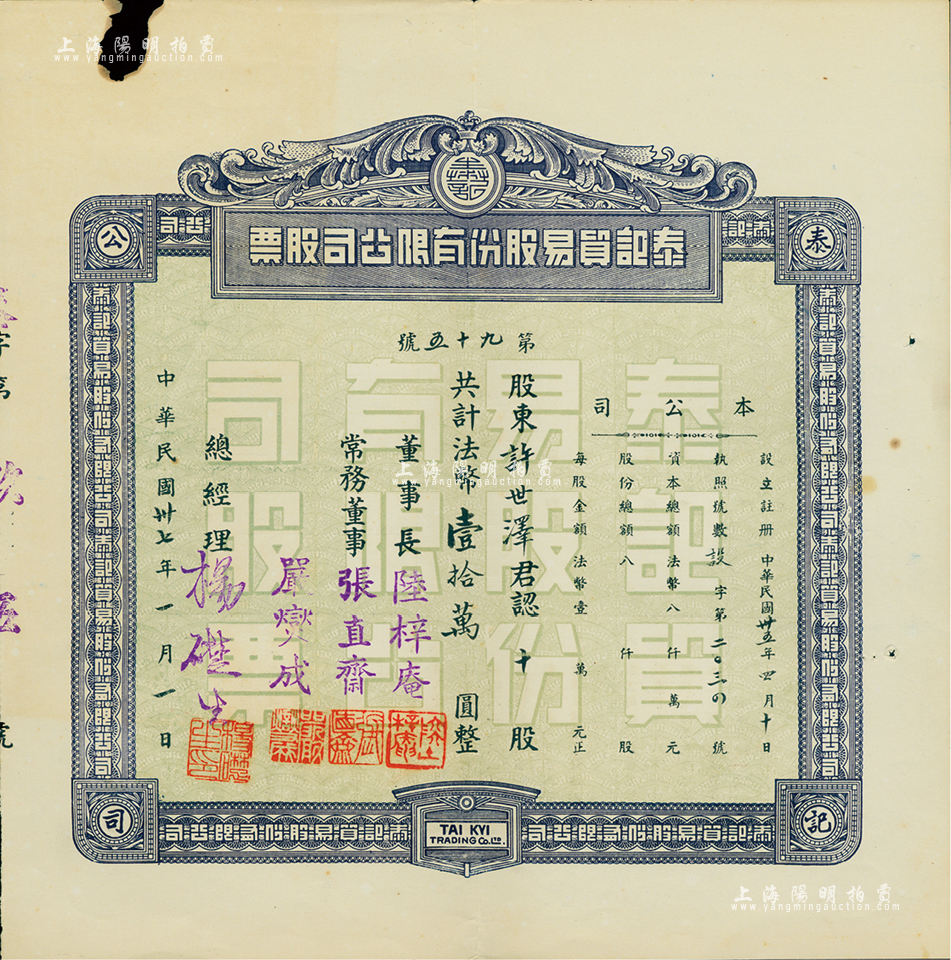 上海陽明拍賣
www.yangmingauction.com
泰記
泰記貿易股份有限公司股票
泰
公
記
司
泰記貿易股份有限公司
第九十五號
本公司
設立註册 中華民國卅五年四月十日
執照號數 設字第二〇三四號
資本總額 法幣八仟萬元
股份總額 八仟股
每股金額 法幣壹萬元正
股東許世澤君認十股
共計法幣壹拾萬圓整
董事長 陸梓庵
常務董事 張直齋
嚴燮成
總經理 楊礎生
中華民國卅七年一月一日
泰記貿易股份有限公司股票
上海陽明拍賣
www.yangmingauction.com
TAI KYI
TRADING Co. Ltd.
字第
號
上海陽明拍賣
www.yangmingauction.com